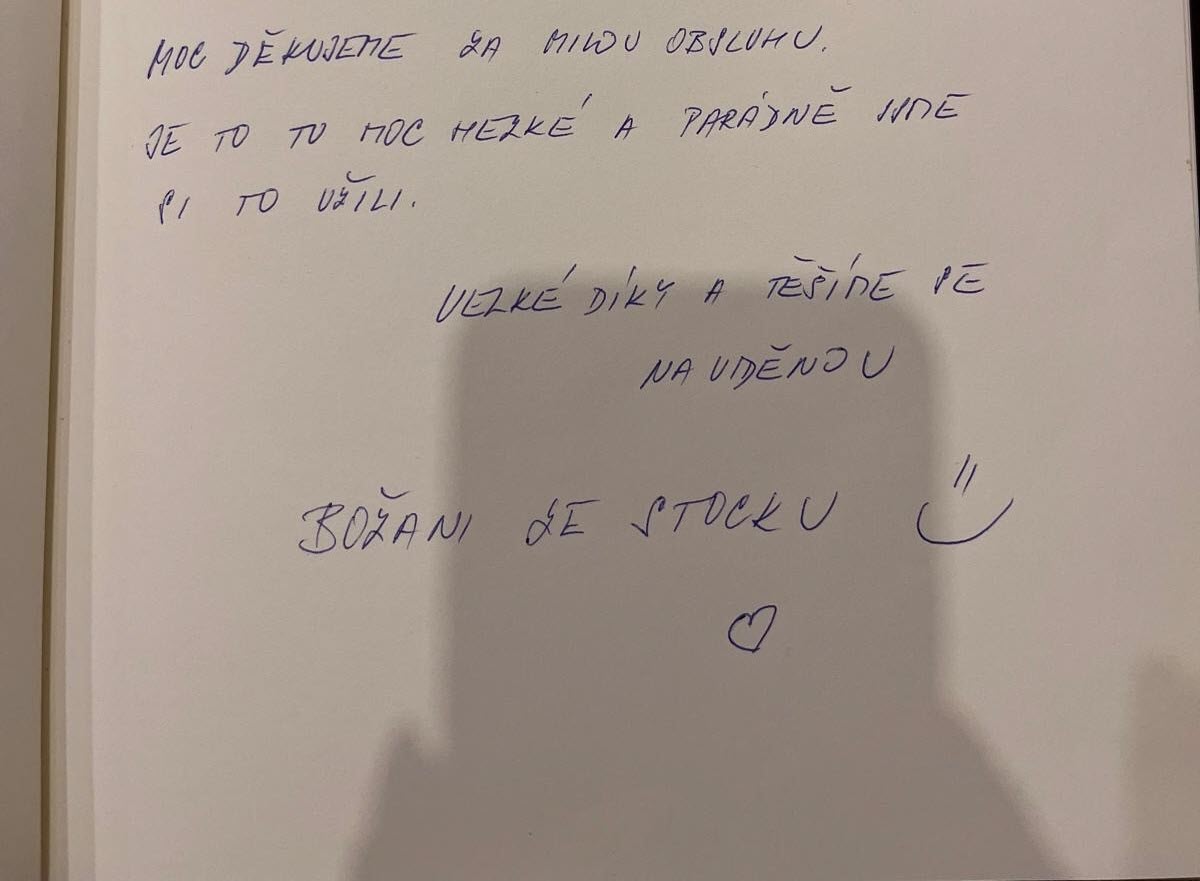 MOC DĚKUJEME ZA MILOU OBSLUHU.
JE TO TU MOC HEZKÉ A PARÁDNĚ JSME
SI TO UŽILI.
VELKÉ DÍKY A TĚŠÍME SE
NA VIDĚNOU
BOŽANI ZE STOCKU